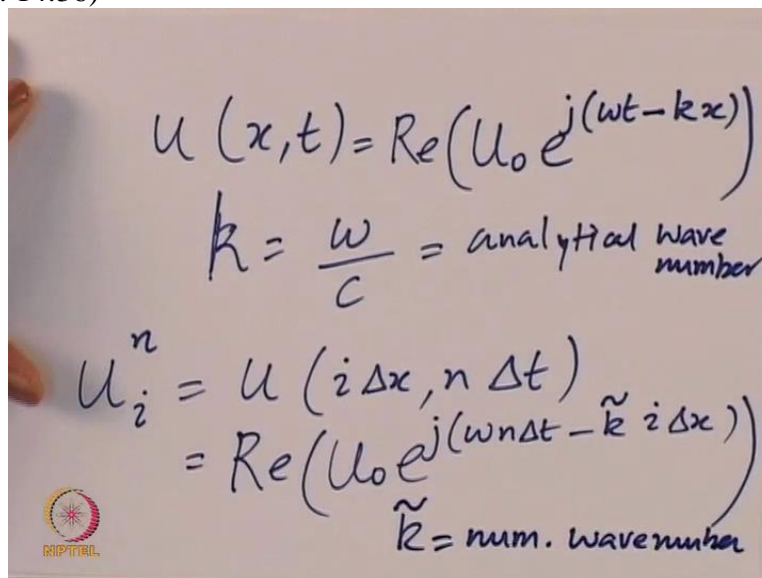 : 14:30)
u (x,t) = Re(U₀ e^{j(ωt – kx)})
k = ω/c = analytical wave number
u_i^n = u (i Δx, n Δt)
= Re(U₀ e^{j(ωnΔt – k̃ i Δx)})
k̃ = num. wavenumber
NPTEL